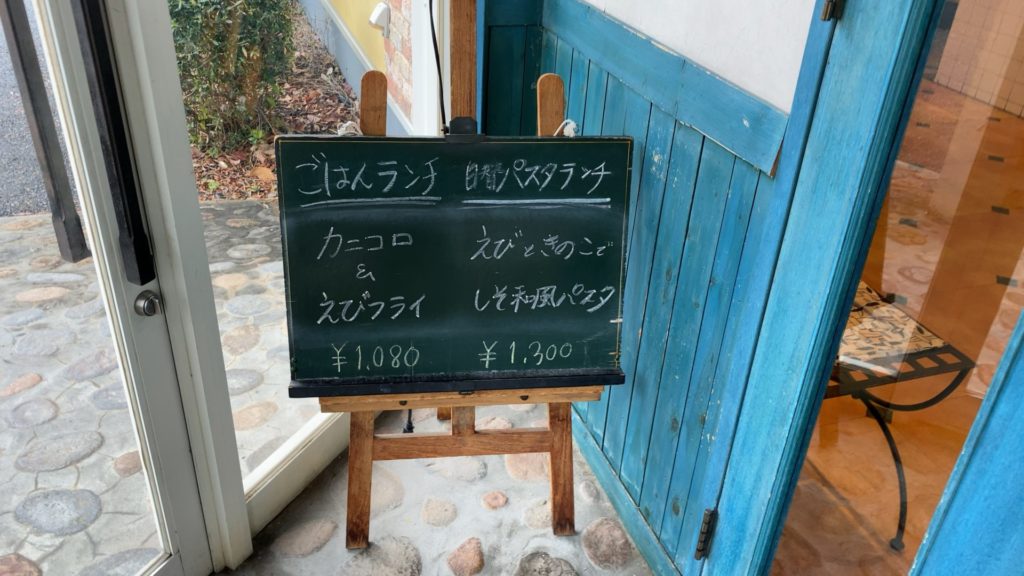 ごはんランチ
カニコロ
&
えびフライ
¥1,080
日替パスタランチ
えびときのこで
しそ和風パスタ
¥1,300